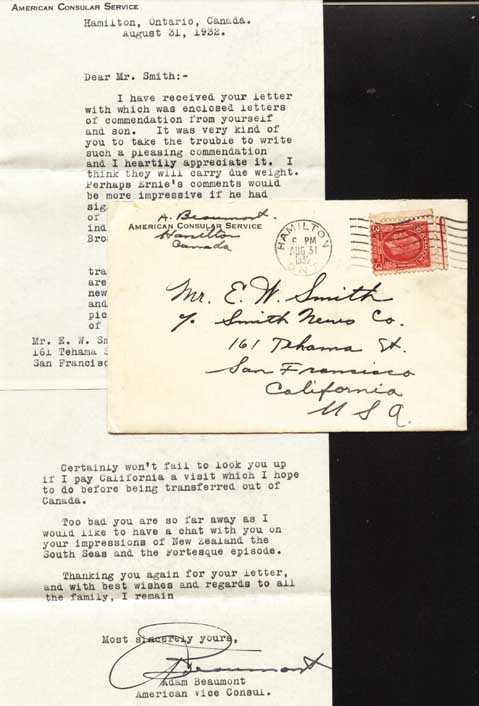 AMERICAN CONSULAR SERVICE
Hamilton, Ontario, Canada.
August 31, 1932.
Dear Mr. Smith:-
I have received your letter
with which was enclosed letters
of commendation from yourself
and son. It was very kind of
you to take the trouble to write
such a pleasing commendation
and I heartily appreciate it. I
think they will carry due weight.
Perhaps Ernie's comments would
be more impressive if he had
sig
of
ind
Bro
tra
are
new
and
pic
of
Mr. E. W. Sm
161 Tehama S
San Francisc
A. Beaumont.
AMERICAN CONSULAR SERVICE
Hamilton
Canada
HAMILTON
PM
AUG 31
1932
ONT.
3 3
Mr. E. W. Smith
% Smith News Co.
161 Tehama St.
San Francisco
California
U S A.
Certainly won't fail to look you up
if I pay California a visit which I hope
to do before being transferred out of
Canada.
Too bad you are so far away as I
would like to have a chat with you on
your impressions of New Zealand the
South Seas and the Fortesque episode.
Thanking you again for your letter,
and with best wishes and regards to all
the family, I remain
Most sincerely yours,
Beaumont
Adam Beaumont
American Vice Consul.